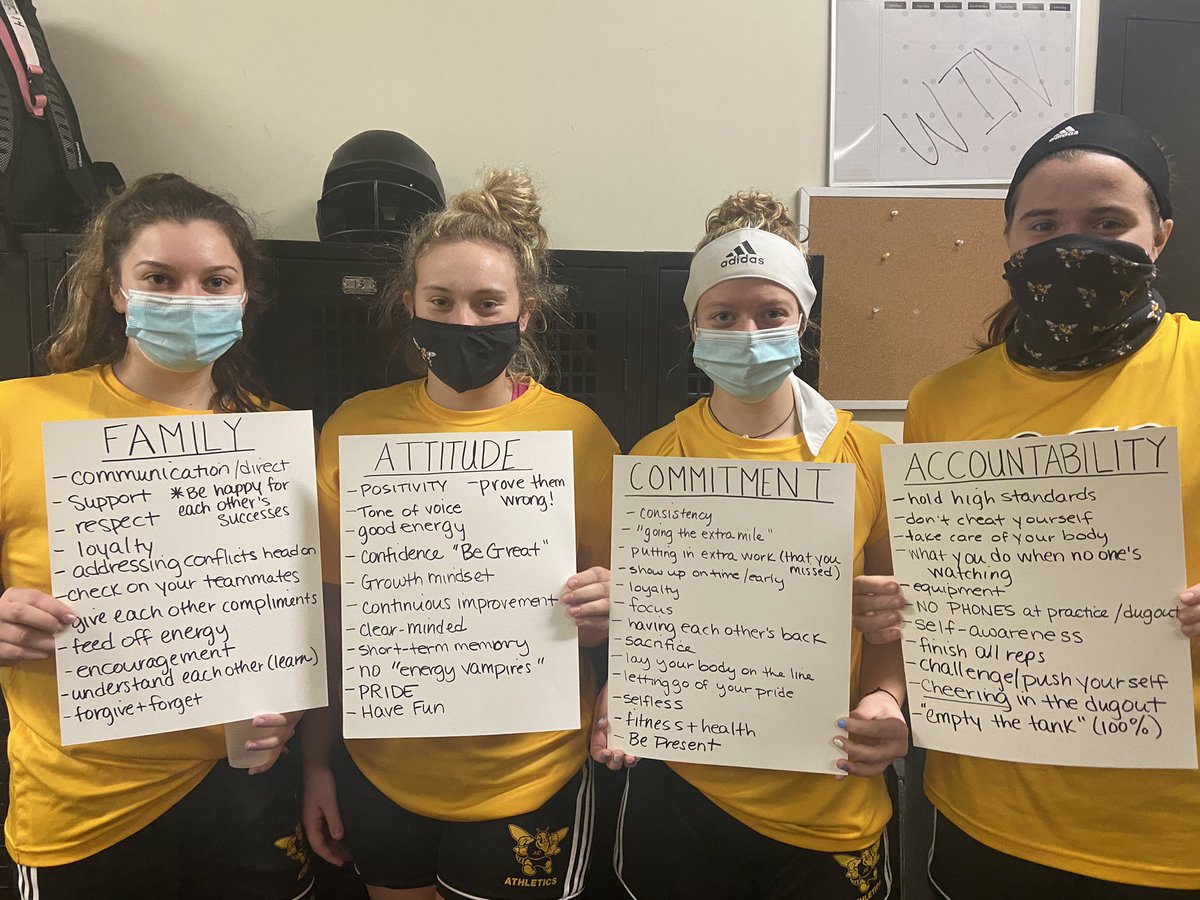 WIN
adidas
FAMILY
- communication/direct
- support *Be happy for
each other's
successes
- respect
- loyalty
- addressing conflicts head on
- check on your teammates
- give each other compliments
- feed off energy
- encouragement
- understand each other (learn)
- forgive + forget
ATTITUDE
- POSITIVITY - prove them
wrong!
- Tone of voice
- good energy
- confidence "Be Great"
- Growth mindset
- continuous improvement
- clear-minded
- short-term memory
- no "energy vampires"
- PRIDE
- Have Fun
COMMITMENT
- consistency
- "going the extra mile"
- putting in extra work (that you
missed)
- show up on time/early
- loyalty
- focus
- having each other's back
- sacrifice
- lay your body on the line
- letting go of your pride
- selfless
- fitness + health
- Be Present
ACCOUNTABILITY
- hold high standards
- don't cheat yourself
- take care of your body
- what you do when no one's
watching
- equipment
- NO PHONES at practice/dugout
- self-awareness
- finish all reps
- challenge/push yourself
- Cheering in the dugout
- "empty the tank" (100%)
ATHLETICS